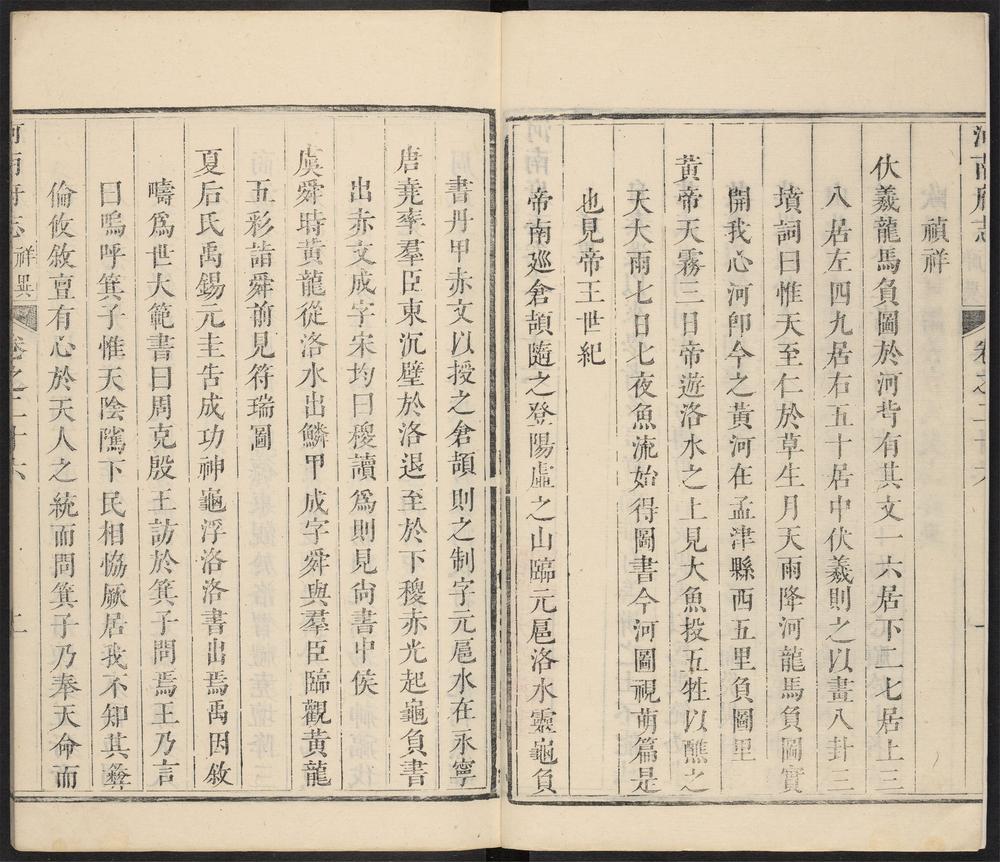 河南府志
卷之二十六
一
禎祥
伏羲龍馬負圖於河背有其文一六居下二七居上三
八居左四九居右五十居中伏羲則之以畫八卦三
墳詞曰惟天至仁於草生月天雨降河龍馬負圖實
開我心河卽今之黃河在孟津縣西五里負圖里
黃帝天霧三日帝遊洛水之上見大魚投五牲以醮之
天大雨七日七夜魚流始得圖書今河圖視萌篇是
也見帝王世紀
帝南廵倉頡隨之登陽虛之山臨元扈洛水靈龜負
書丹甲赤文以授之倉頡則之制字元扈水在永寧
唐堯率羣臣東沉壁於洛退至於下稷赤光起龜負書
出赤文成字宋均曰稷讀爲則見尙書中侯
虞舜時黃龍從洛水出鱗甲成字舜與羣臣臨觀黃龍
五彩詣舜前見符瑞圖
夏后氏禹錫元圭告成功神龜浮洛洛書出焉禹因敘
疇爲世大範書曰周克殷王訪於箕子問焉王乃言
曰嗚呼箕子惟天陰隲下民相協厥居我不知其彝
倫攸敘亶有心於天人之統而問箕子乃奉天命而
河南府志
祥異
卷之二十六
二